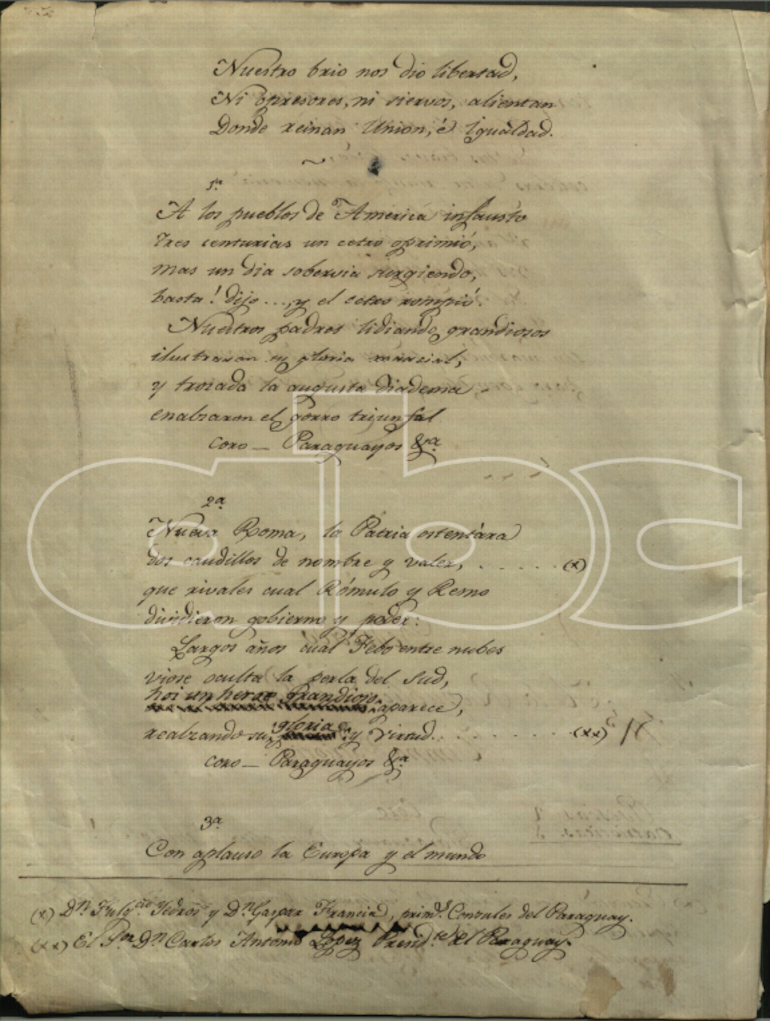 Nuestro brio nos dio libertad,
Ni opresores, ni siervos, alientan
Donde reinan Union, é Igualdad.
1ª
A los pueblos de America infausto
tres centurias un cetro oprimió,
mas un dia sobervia surgiendo,
basta! dijo..., y el cetro rompió.
Nuestros padres lidiando grandiosos
ilustraron su gloria marcial,
y trozada la augusta diadema
enalzaron el gorro triunfal
coro — Paraguayos &ª
2ª
Nueva Roma, la Pátria ostentára
dos caudillos de nombre y valer, . . . . . . (x)
que rivales cual Rómulo y Remo
dividieron gobierno y poder:
Largos años cual Febo entre nubes
viose oculta la perla del Sud,
hoi un heroe grandioso aparece,
realzando su gloria y virtud. . . . . . . . (xx)
coro — Paraguayos &ª
3ª
Con aplauso la Europa y el mundo
(x) Dn. Fulgcio Yedros y Dn. Gaspar Francia, primos Consules del Paraguay.
(xx) El Sor Dn Carlos Antonio Lopez Presidte del Paraguay.
abc